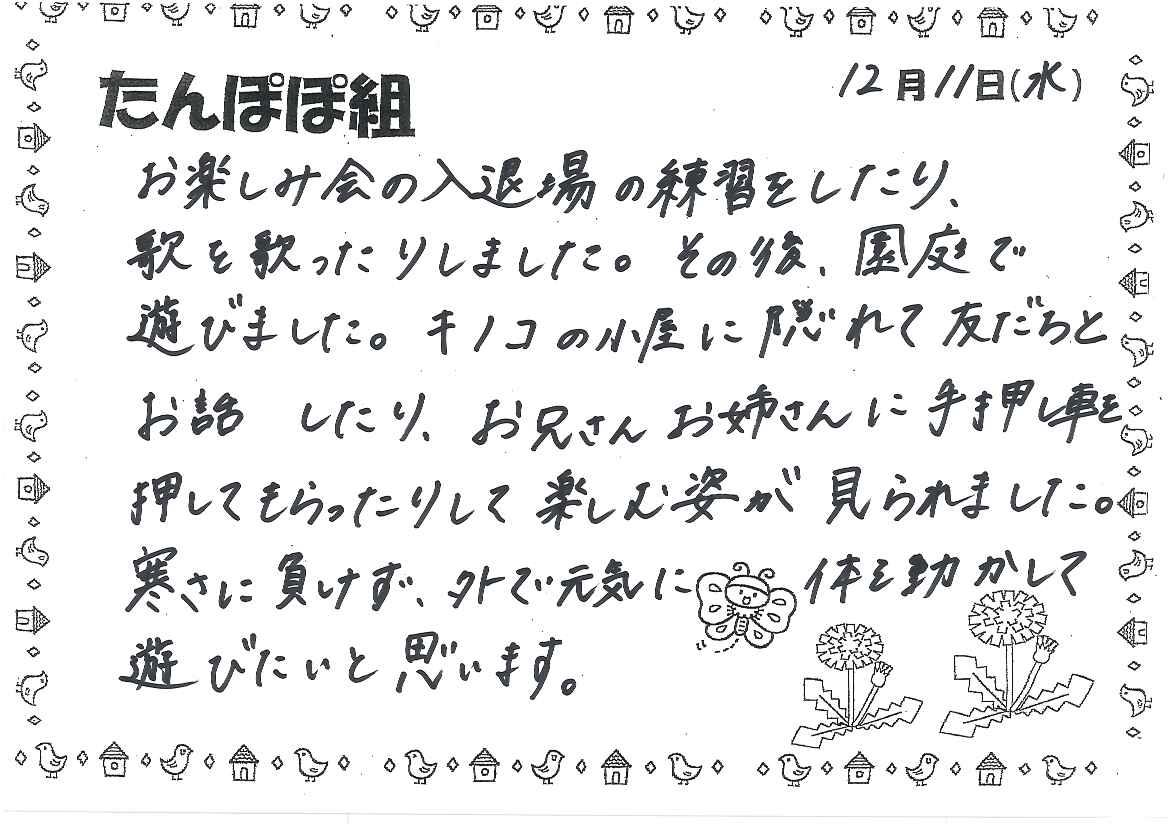 たんぽぽ組
12月11日(水)
お楽しみ会の入退場の練習をしたり、
歌を歌ったりしました。その後、園庭で
遊びました。キノコの小屋に隠れて友だちと
お話 したり、お兄さんお姉さんに手押し車を
押してもらったりして楽しむ姿が見られました。
寒さに負けず、外で元気に 体を動かして
遊びたいと思います。